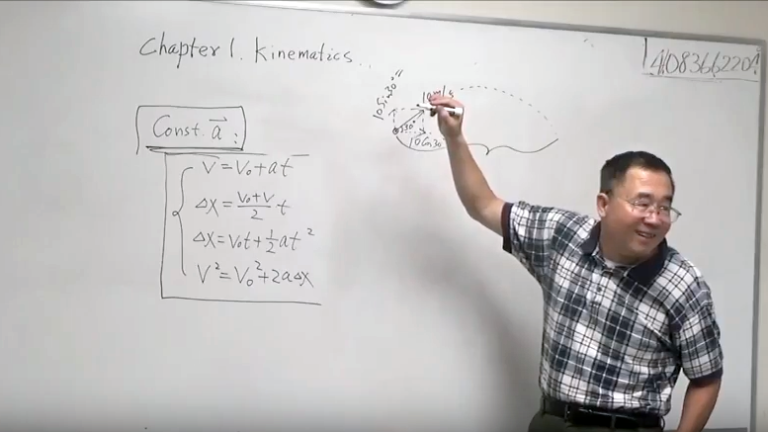 Chapter 1. Kinematics
Const. a⃗ :
V = V₀ + at
Δx = (V₀+V)/2 t
Δx = V₀t + ½at²
V² = V₀² + 2aΔx
10 Sin30°
10 m/s
30°
10 Cos30°